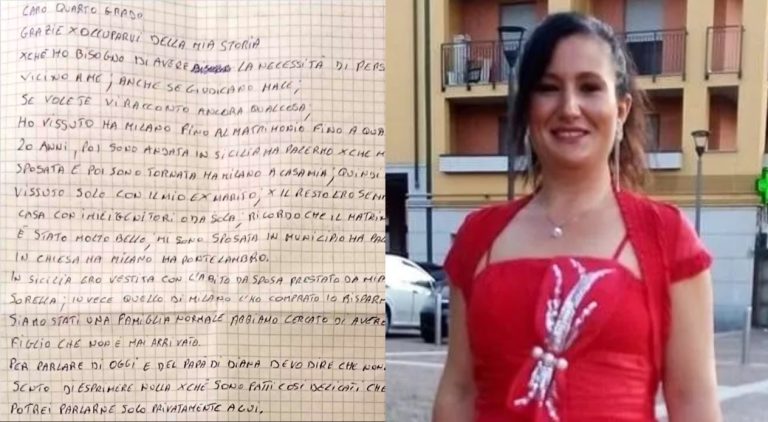 CARO QUARTO GRADO
GRAZIE X OCCUPARVI DELLA MIA STORIA
XCHÉ HO BISOGNO DI AVERE LA NECESSITÀ DI PERS
VICINO A ME, ANCHE SE GIUDICANO MALE;
SE VOLETE VI RACCONTO ANCORA QUALCOSA;
HO VISSUTO HA MILANO FINO AL MATRIMONIO FINO A QUA
20 ANNI, POI SONO ANDATA IN SICILIA HA PALERMO XCHE M
SPOSATA E POI SONO TORNATA HA MILANO A CASA MIA; QUINDI
VISSUTO SOLO CON IL MIO EX MARITO, X IL RESTO ERO SEM
CASA CON I MIEI GENITORI O DA SOLA, RICORDO CHE IL MATRIM
È STATO MOLTO BELLO, MI SONO SPOSATA IN MUNICIPIO HA PAL
IN CHIESA HA MILANO HA PONTELAMBRO.
IN SICILIA ERO VESTITA CON L'ABITO DA SPOSA PRESTATO DA MIA
SORELLA; INVECE QUELLO DI MILANO L'HO COMPRATO IO RISPARM
SIAMO STATI UNA FAMIGLIA NORMALE ABBIAMO CERCATO DI AVERE
FIGLIO CHE NON È MAI ARRIVATO.
PER PARLARE DI OGGI E DEL PAPA DI DIANA DEVO DIRE CHE NON
SENTO DI ESPRIMERE NULLA XCHÉ SONO FATTI COSI DELICATI CHE
POTREI PARLARNE SOLO PRIVATAMENTE A LUI.